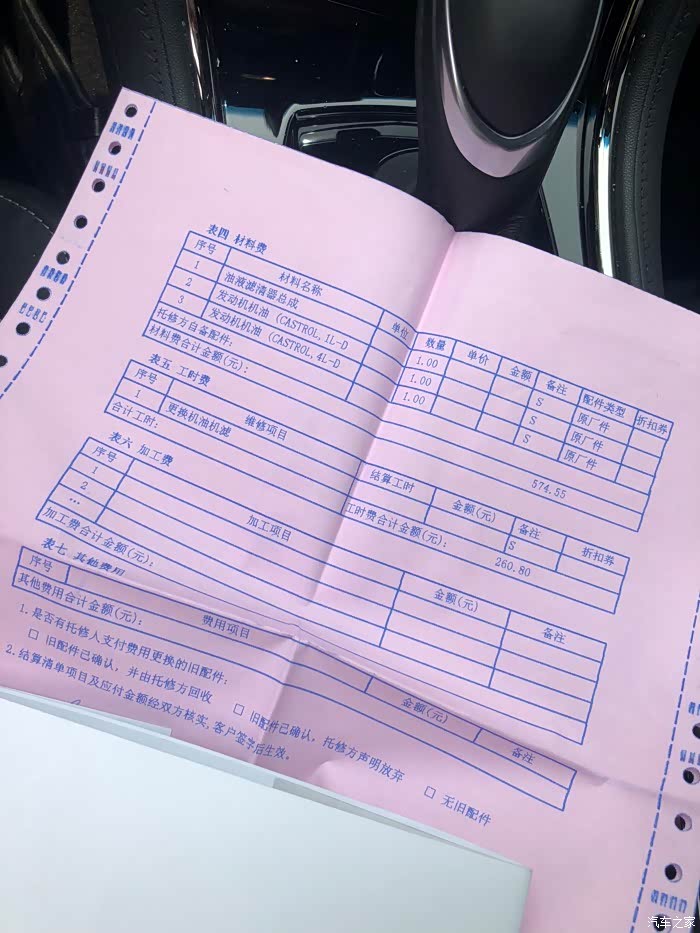 表四 材料费
序号 材料名称 单位 数量 单价 金额 备注 配件类型 折扣券
1 油液滤清器总成 1.00 S 原厂件
2 发动机机油 (CASTROL,1L-D 1.00 S 原厂件
3 发动机机油 (CASTROL,4L-D 1.00 S 原厂件
托修方自备配件:
材料费合计金额(元): 574.55
表五 工时费
序号 维修项目 结算工时 金额(元) 备注 折扣券
1 更换机油机滤 S
合计工时: 工时费合计金额(元): 260.80
表六 加工费
序号 加工项目 金额(元) 备注
1
2
...
加工费合计金额(元):
表七 其他费用
序号 费用项目 金额(元) 备注
其他费用合计金额(元):
1.是否有托修人支付费用更换的旧配件:
□ 旧配件已确认, 并由托修方回收 □ 旧配件已确认, 托修方声明放弃 □ 无旧配件
2.结算清单项目及应付金额经双方核实,客户签字后生效。
汽车之家